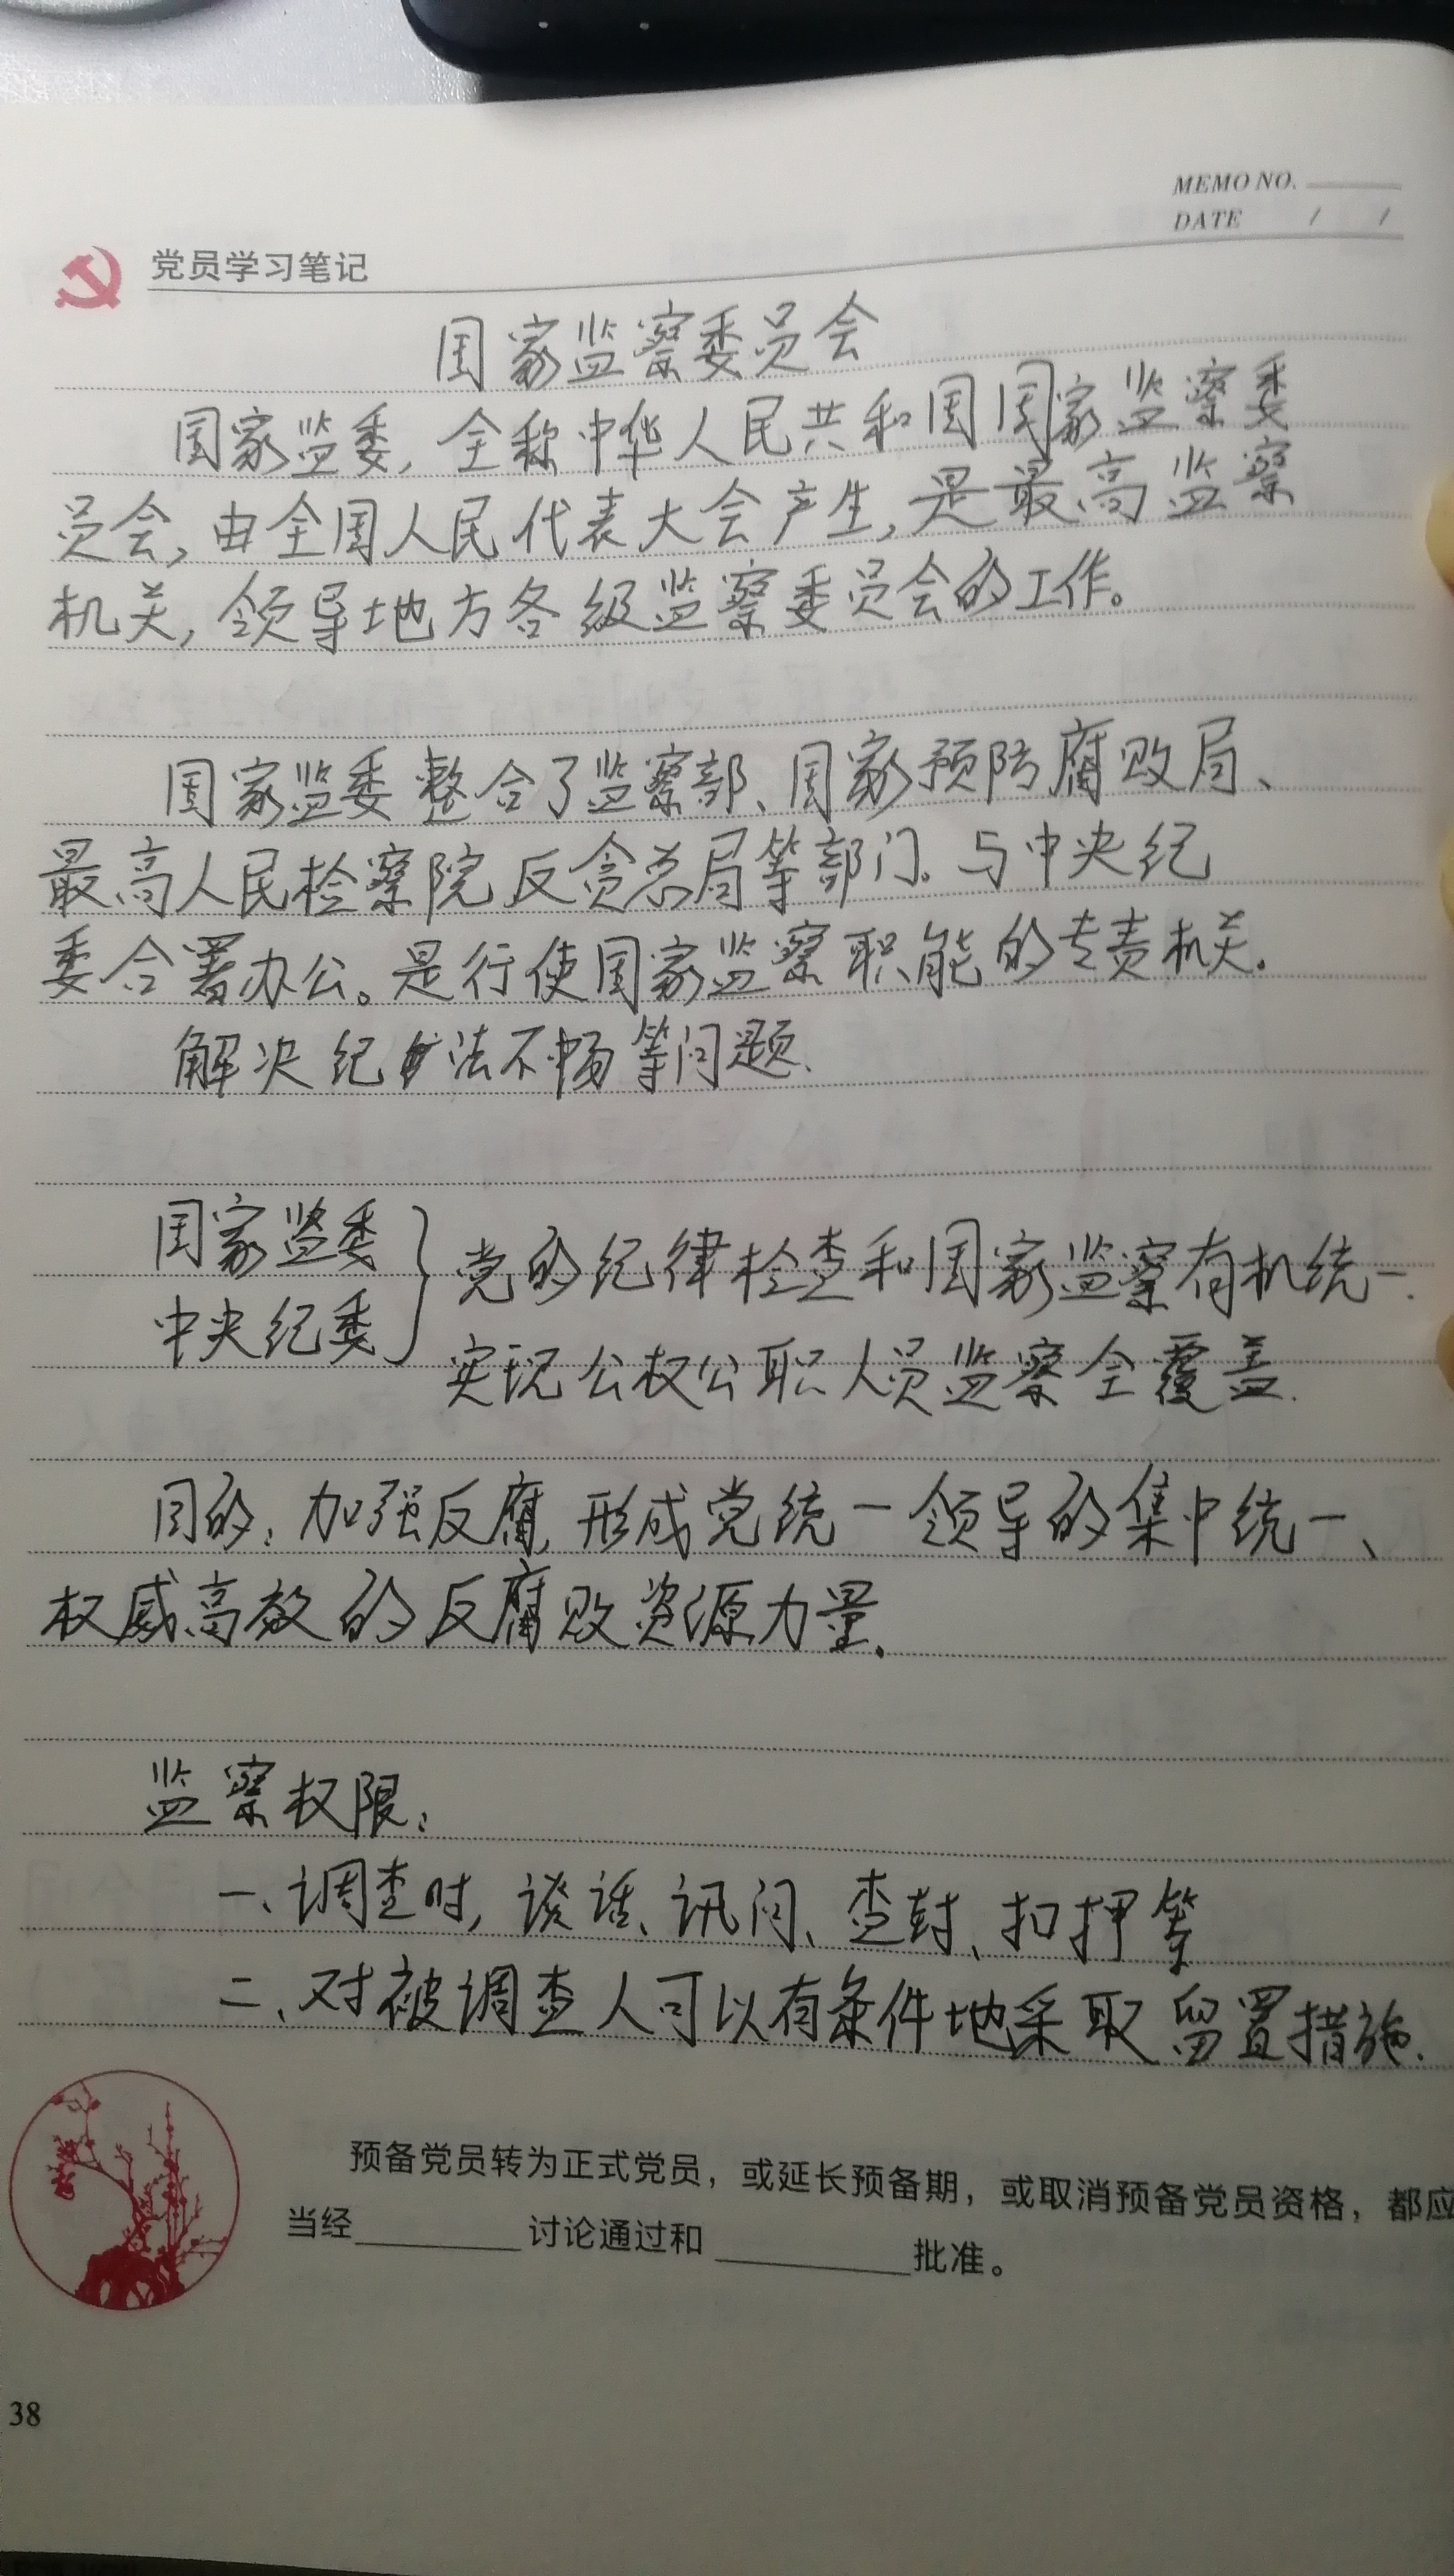 MEMO NO.
DATE / /
党员学习笔记
国家监察委员会
国家监委，全称中华人民共和国国家监察委
员会，由全国人民代表大会产生，是最高监察
机关，领导地方各级监察委员会的工作。
国家监委整合了监察部、国家预防腐败局、
最高人民检察院反贪总局等部门。与中央纪
委合署办公。是行使国家监察职能的专责机关。
解决纪法不畅等问题.
国家监委
中央纪委
党的纪律检查和国家监察有机统一.
实现公权公职人员监察全覆盖.
目的：加强反腐，形成党统一领导的集中统一、
权威高效的反腐败资源力量.
监察权限：
一、调查时，谈话、讯问、查封、扣押等
二、对被调查人可以有条件地采取留置措施.
预备党员转为正式党员，或延长预备期，或取消预备党员资格，都应
当经________讨论通过和________批准。
38